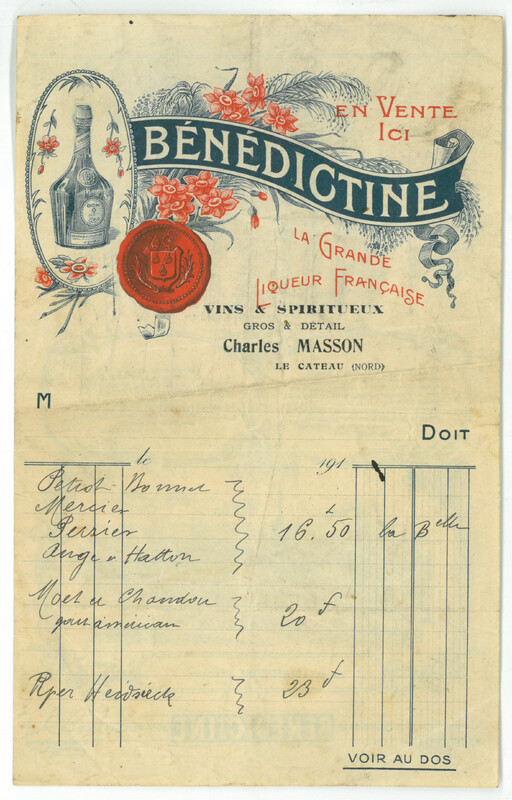 EN VENTE
ICI
BÉNÉDICTINE
LA GRANDE
LIQUEUR FRANÇAISE
VINS & SPIRITUEUX
GROS & DÉTAIL
Charles MASSON
LE CATEAU (NORD)
M
DOIT
le 191
Bonnet
Mercier
Perrier
16.50 la Belle
Moet et Chandon
gout américain
20 f
Piper Heidsieck
23 f
VOIR AU DOS